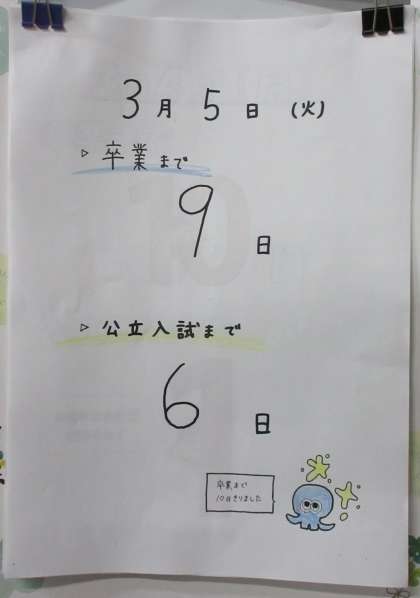 3月 5日 (火)
▷ 卒業まで
9日
▷ 公立入試まで
6日
卒業まで
10日きりました